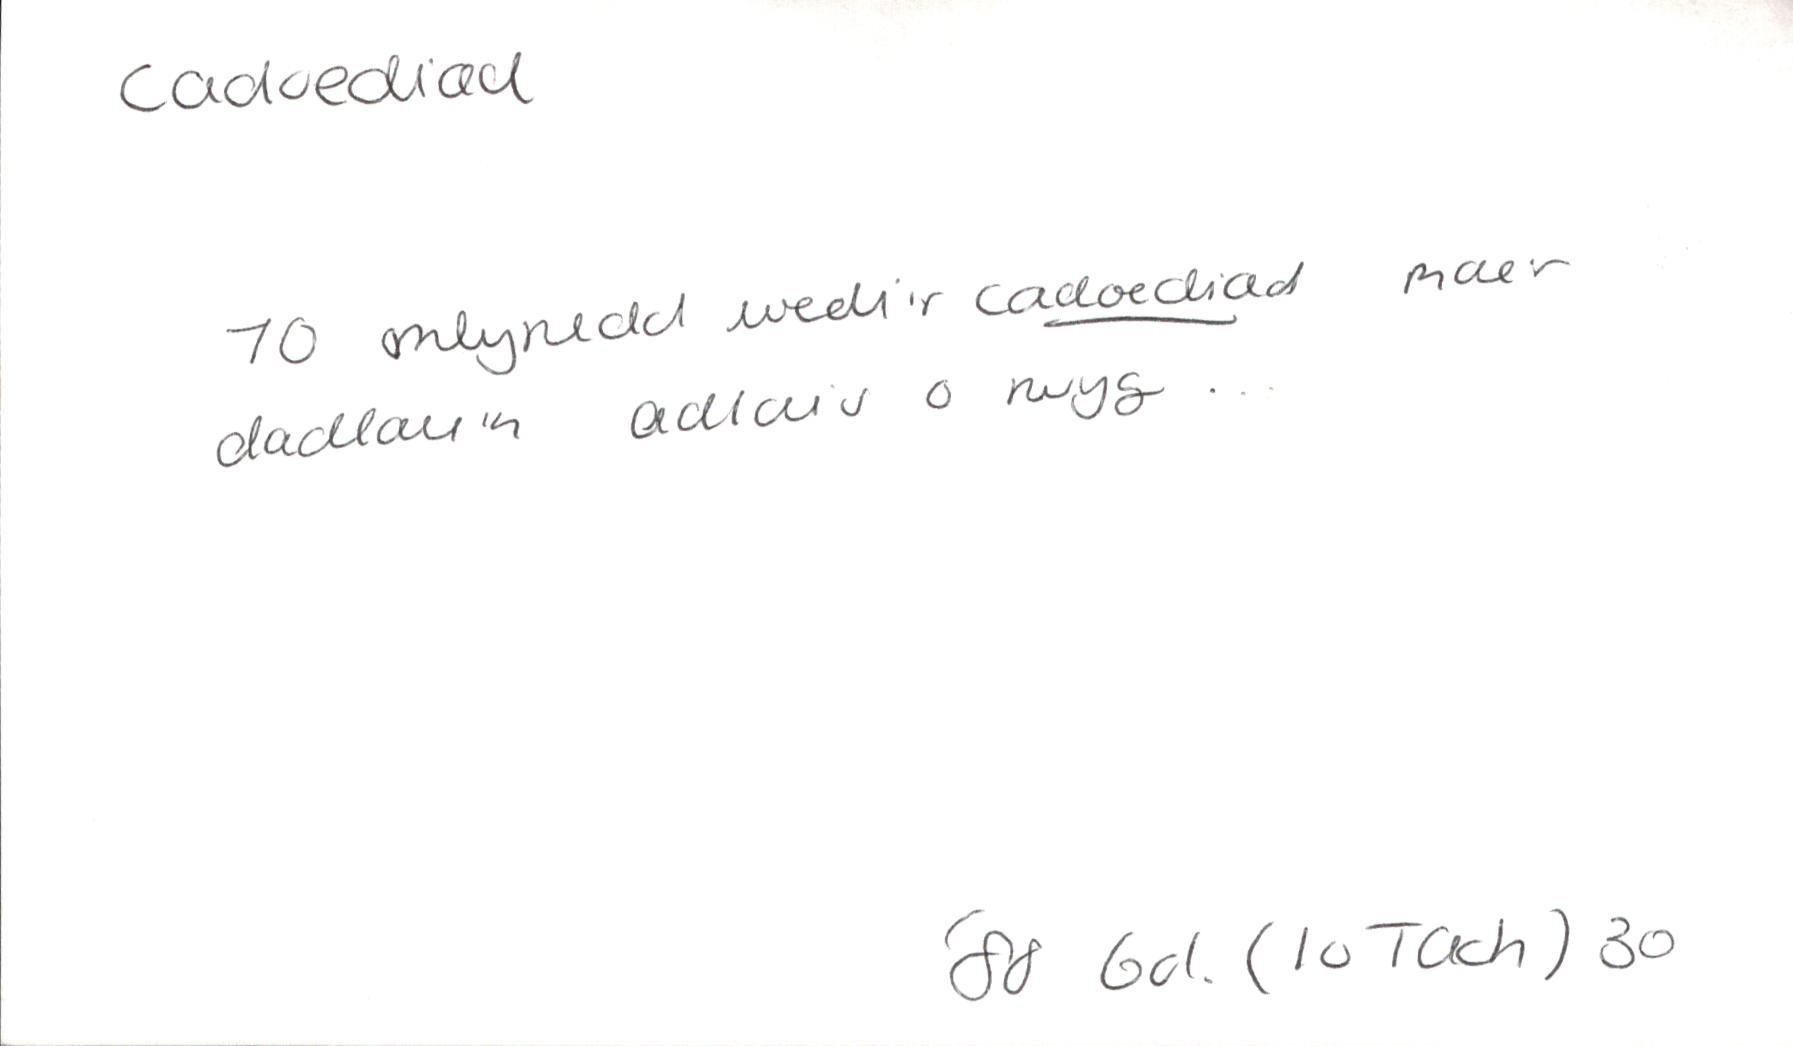 cadoediad
70 mlynedd wedi'r cadoediad maer
dadlau'n adlais o nwyg ...
Gd. (10 Tach) 30